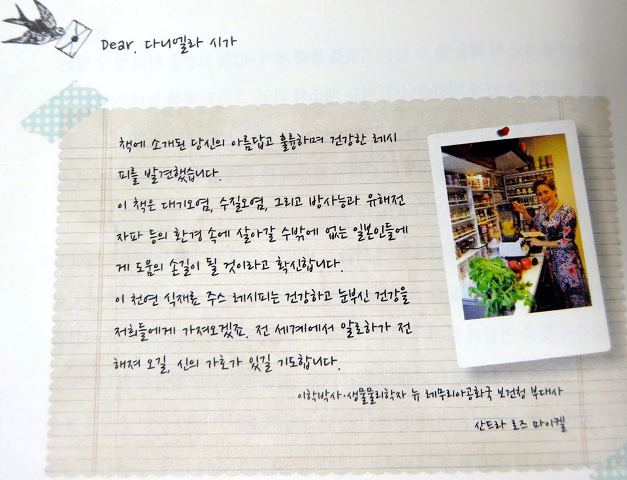 Dear. 다니엘라 시가
책에 소개된 당신의 아름답고 훌륭하며 건강한 레시
피를 발견했습니다.
이 책은 대기오염, 수질오염, 그리고 방사능과 유해전
자파 등의 환경 속에 살아갈 수밖에 없는 일본인들에
게 도움의 손길이 될 것이라고 확신합니다.
이 천연 식재료 주스 레시피는 건강하고 눈부신 건강을
저희들에게 가져오겠죠. 전 세계에서 알로하가 전
해져 오길, 신의 가호가 있길 기도합니다.
이학박사·생물물리학자 뉴 레무리아공화국 보건청 부대사
산드라 로즈 마이켈